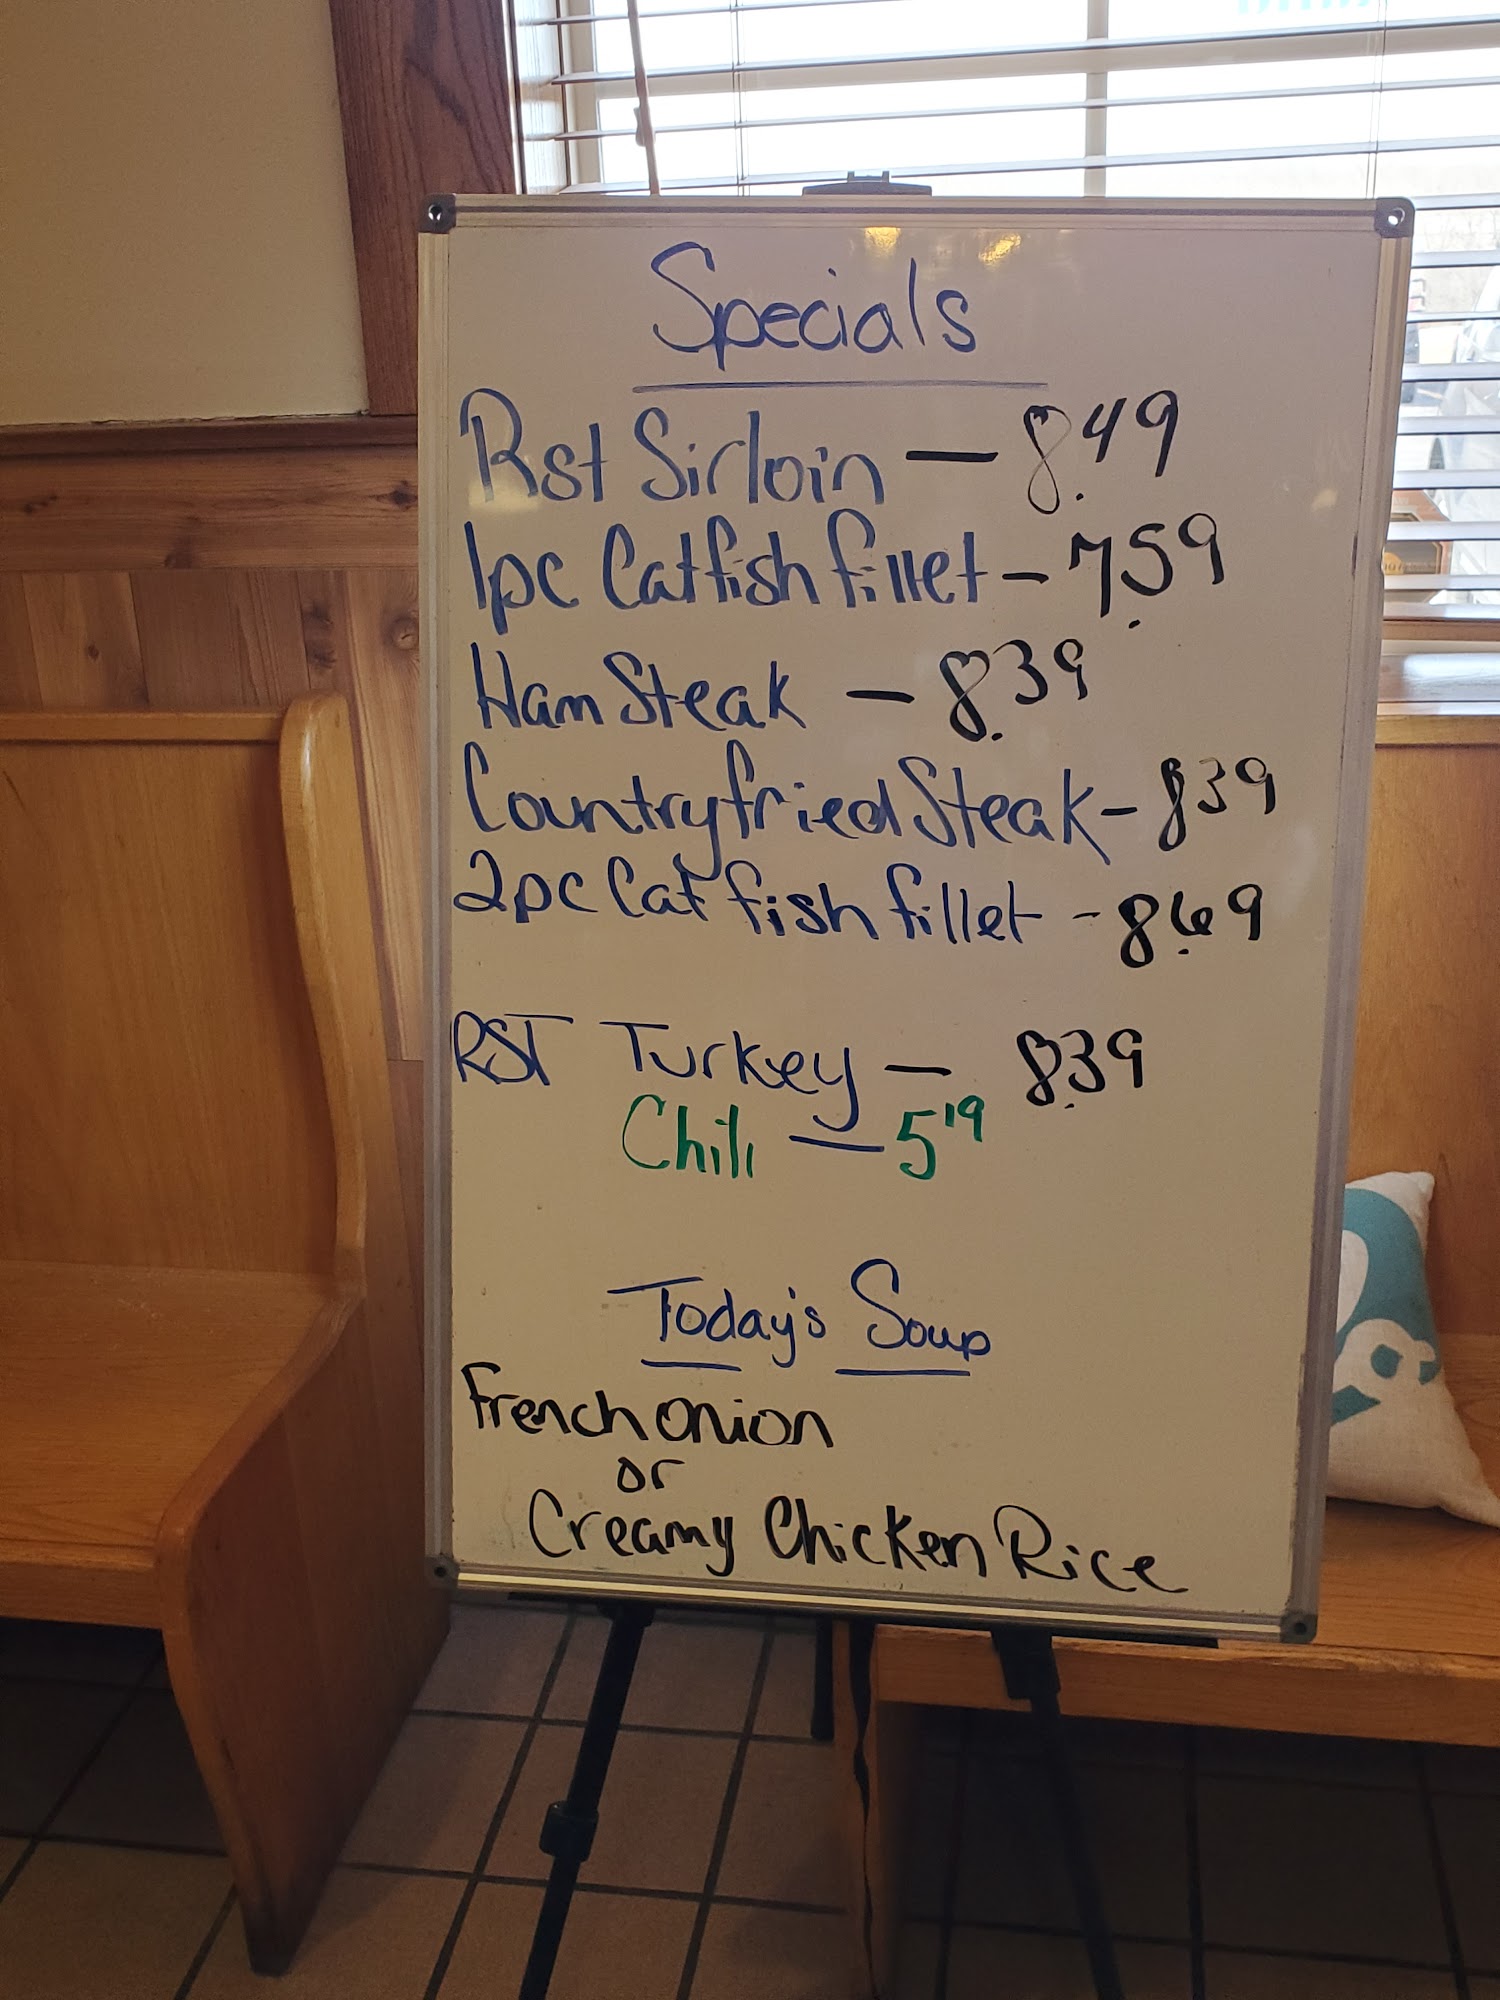 Specials
Rst Sirloin — 8.49
1pc Catfish fillet - 7.59
Ham Steak - 8.39
Country fried Steak - 839
2pc Catfish fillet - 8.69
RST Turkey - 8.39
Chili - 5 19
Today's Soup
French onion
or
Creamy Chicken Rice